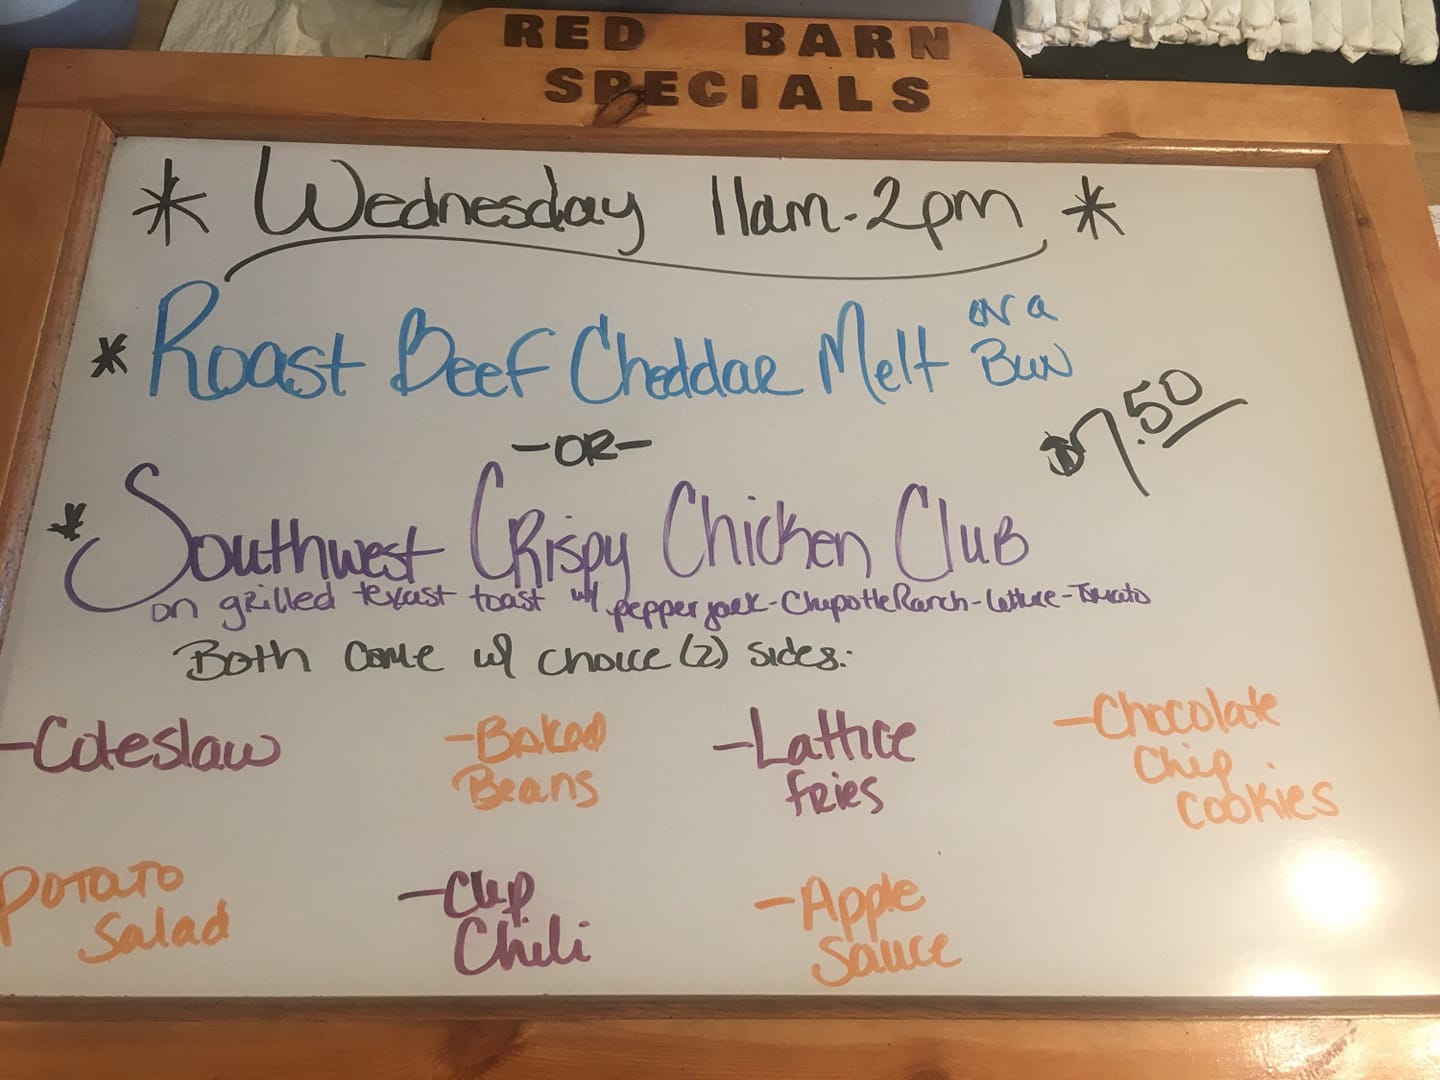 RED BARN
SPECIALS
* Wednesday 11am-2pm *
* Roast Beef Cheddar Melt on a Bun
$7.50
-OR-
* Southwest Crispy Chicken Club
on grilled texast toast w/ pepperjack-Chipotle Ranch-Lettuce-Tomato
Both come w/ choice (2) sides:
-Coleslaw
-Baked
Beans
-Lattice
fries
-Chocolate
Chip
Cookies
Potato
Salad
-Cup
Chili
-Apple
Sauce